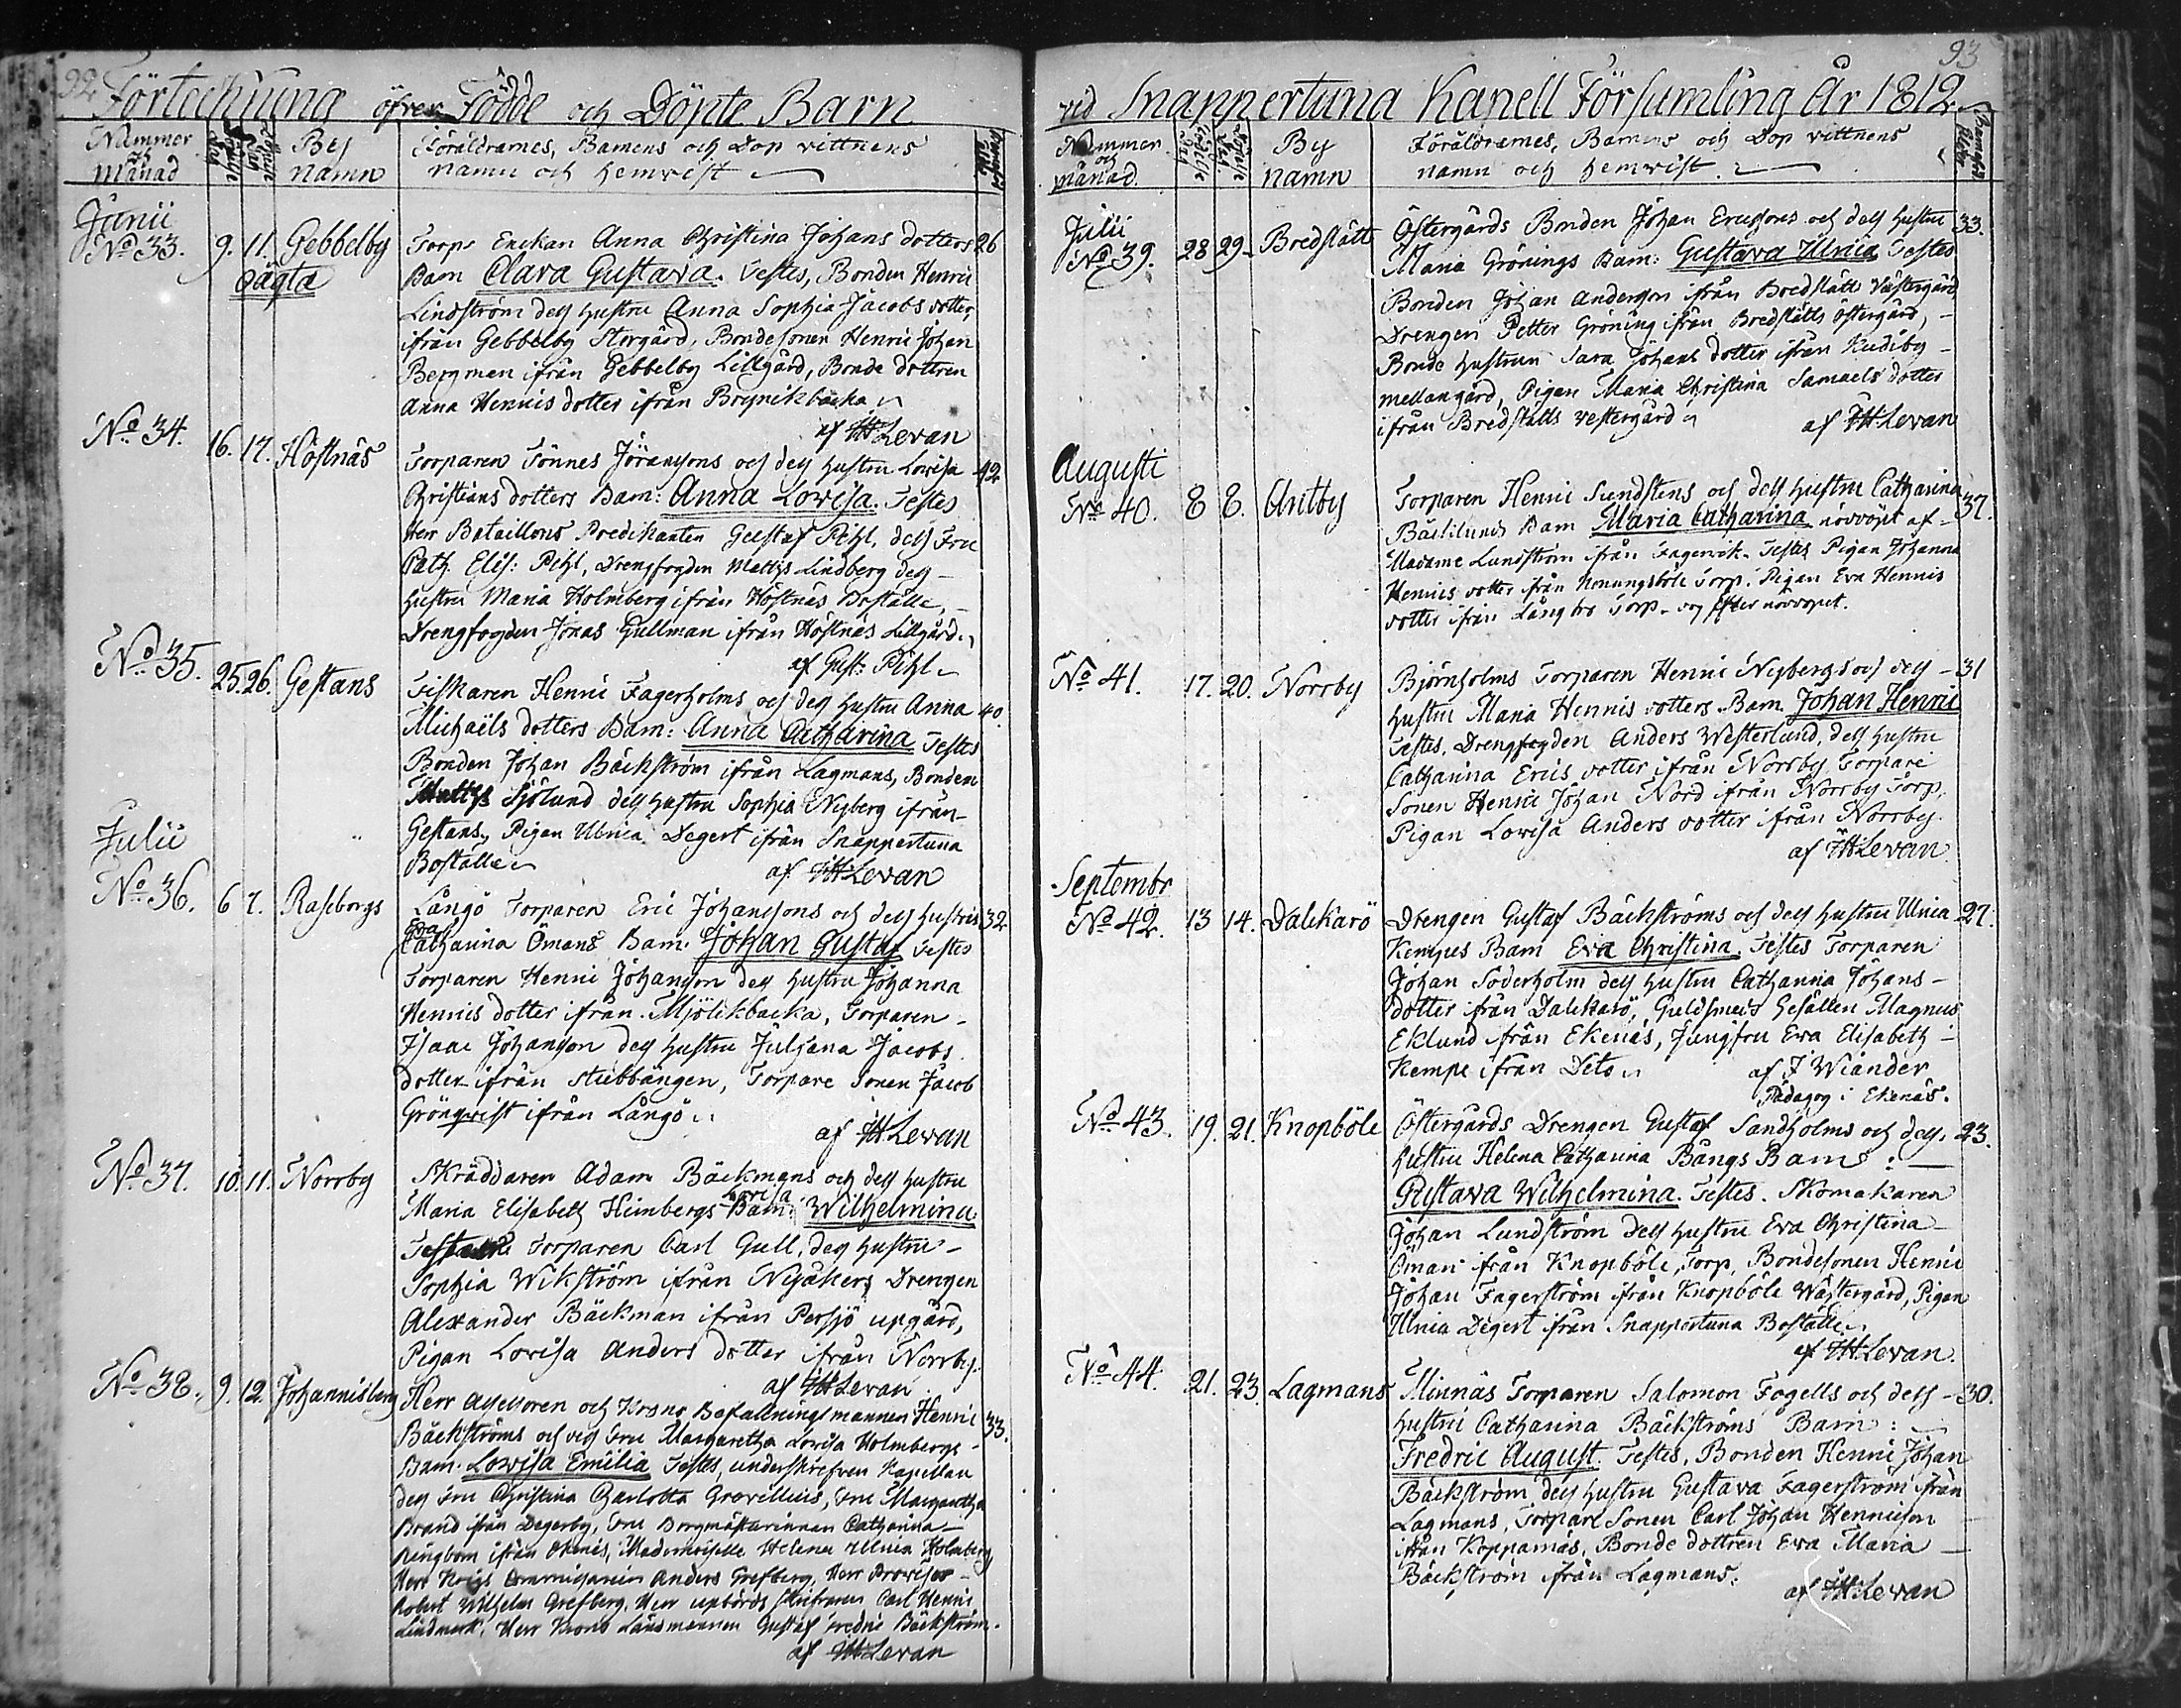 92
Förteckning öfver Födde och Döpte Barn
Nummer och månad
By namn
Föräldrarnes, Barnens och Dop vittnens
namn och hemvist
Junii
No 33. 9. 11. Gebbelby
oägta
Torps Enckan Anna Christina Johans dotters 26
Barn Clara Gustava. Testes, Bonden Henric
Lindström dess hustru Anna Sophia Jacobs dotter,
ifrån Gebbelby Storgård, Bondesonen Henric Johan
Bergman ifrån Gebbelby Lillgård, Bonde dottren
Anna Henrics dotter ifrån
af JH Levan
No 34. 16. 17. Höstnäs
Torparen Tönnes Göranssons och dess hustru Lovisa 42
Christians dotters Barn: Anna Lovisa. Testes
Herr Bataillons Predikanten Gustaf Pihl, dess Fru
Cath. Elis: Pihl, Drengfogden Mattss Lindberg dess
hustru Maria Holmberg ifrån Höstnäs Boställe,
Drengfogden Jonas Gullman ifrån Höstnäs Lillgård.
af Gust. Pihl
No 35. 25. 26. Gestans
Fiskaren Henric Fagerholms och dess hustru Anna 40.
Michaëls dotters Barn: Anna Catharina Testes
Bonden Johan Bäckström ifrån Lagmans, Bonden
Mattss Sjölund dess hustru Sophia Nyberg ifrån
Gestans, Pigan Ulrica Degert ifrån Snappertuna
Boställe
af JH Levan
Julii
No 36. 6 7. Raseborgs
Långö Torparen Eric Johanssons och dess hustrus 32
Eva
Catharina Ömans Barn. Johan Gustaf Testes
Torparen Henric Johansson dess hustru Johanna
Henrics dotter ifrån Mjölikbacka, Torparen
Isaac Johansson dess hustru Juliana Jacobs
dotter ifrån Stubbängen, Torpare Sonen Jacob
Grönqvist ifrån Långö
af JH Levan
No 37. 10. 11. Norrby
Skräddaren Adam Bäckmans och dess hustru
Lovisa
Maria Elisabeth Heimbergs Barn: Wilhelmina.
Testes Torparen Carl Gull, dess hustru
Sophia Wikström ifrån Nyåkers Drengen
Alexander Bäckman ifrån Persjö upgård,
Pigan Lovisa Anders dotter ifrån Norrby.
af JH Levan
No 38. 9. 12. Johannisberg
Herr Assessoren och Krono Befallningsmannen Henric 33.
Bäckströms och dess Fru Margaretha Lovisa Holmbergs
Barn. Lovisa Emilia Testes, underskrefven Kapellan
dess Fru Christina Charlotta Gravellius, Fru Margaretha
Brand ifrån Degerby, Fru Borgmästarinnan Catharina
Ringbom ifrån Ekenäs, Mademoiselle Helena Ulrica Holmberg
Herr Krigs Commissarien Anders Grefberg, Herr Provisor
Robert Wilhelm Grefberg, Herr upbörds Skrifvaren Carl Henric
Lindmark, Herr Krono Länsmannen Gustaf Fredric Bäckström.
af JH Levan
93
vid Snappertuna Kapell Församling År 1812
Nummer och månad
By namn
Föräldrarnes, Barnens och Dop vittnens
namn och hemvist.
Julii
No 39. 28 29 Bredslätt
Östergårds Bonden Johan Ericssons och dess hustru 33.
Maria Grönings Barn: Gustava Ulrica Testes
Bonden Johan Andersson ifrån Bredslätt Västergård
Drengen Petter Gröning ifrån Bredslätts Östergård,
Bonde hustrun Sara Johans dotter ifrån Kudiby
mellangård, Pigan Maria Christina Samuels dotter
ifrån Bredslätts vestergård
af JH Levan
Augusti
No 40. 8 8. Antby
Torparen Henric Sundstens och dess hustru Catharina 37.
Bäcklunds Barn Maria Catharina nöddöpt af
Madame Lundström ifrån Fagervik. Testes Pigan Johanna
Henrics dotter ifrån Nonungsböle Torp. Pigan Eva Henrics
dotter ifrån Långbro Torp. dog efter nöddopet.
No 41. 17. 20. Norrby
Björnholms Torparen Henric Nybergs och dess 31
hustru Maria Henrics dotters Barn Johan Henric
Testes. Drengfogden Anders Westerlund, dess hustru
Catharina Erics dotter ifrån Norrby Torpare
Sonen Henric Johan Nord ifrån Norrby Torp,
Pigan Lovisa Anders dotter ifrån Norrby.
af JH Levan
Septembr
No 42. 13 14. Dalckarö
Drengen Gustaf Bäckströms och dess hustru Ulrica 27.
Kempes Barn Eva Christina. Testes Torparen
Johan Söderholm dess hustru Catharina Johans
dotter ifrån Dalckarö, Guldsmeds Gesällen Magnus
Eklund ifrån Ekenäs, Jungfru Eva Elisabeth
Kempe ifrån Dets
af J Wiander
Pädagog i Ekenäs.
No 43. 19. 21. Knopböle
Östergårds Drengen Gustaf Sandholms och dess 23.
hustru Helena Catharina Bångs Barn:
Gustava Wilhelmina. Testes. Skomakaren
Johan Lundström dess hustru Eva Christina
Öman ifrån Knopböle Torp, Bondesonen Henric
Johan Fagerström ifrån Knopböle Wästergård, Pigan
Ulrica Degert ifrån Snappertuna Boställe
af JH Levan.
No 44. 21. 23. Lagmans
Minnäs Torparen Salomon Fogells och dess 30.
hustru Catharina Bäckströms Barn:
Fredric August. Testes. Bonden Henric Johan
Bäckström dess hustru Gustava Fagerström ifrån
Lagmans, Torpare Sonen Carl Johan Henricson
ifrån Koppanäs, Bonde dottren Eva Maria
Bäckström ifrån Lagmans.
af JH Levan